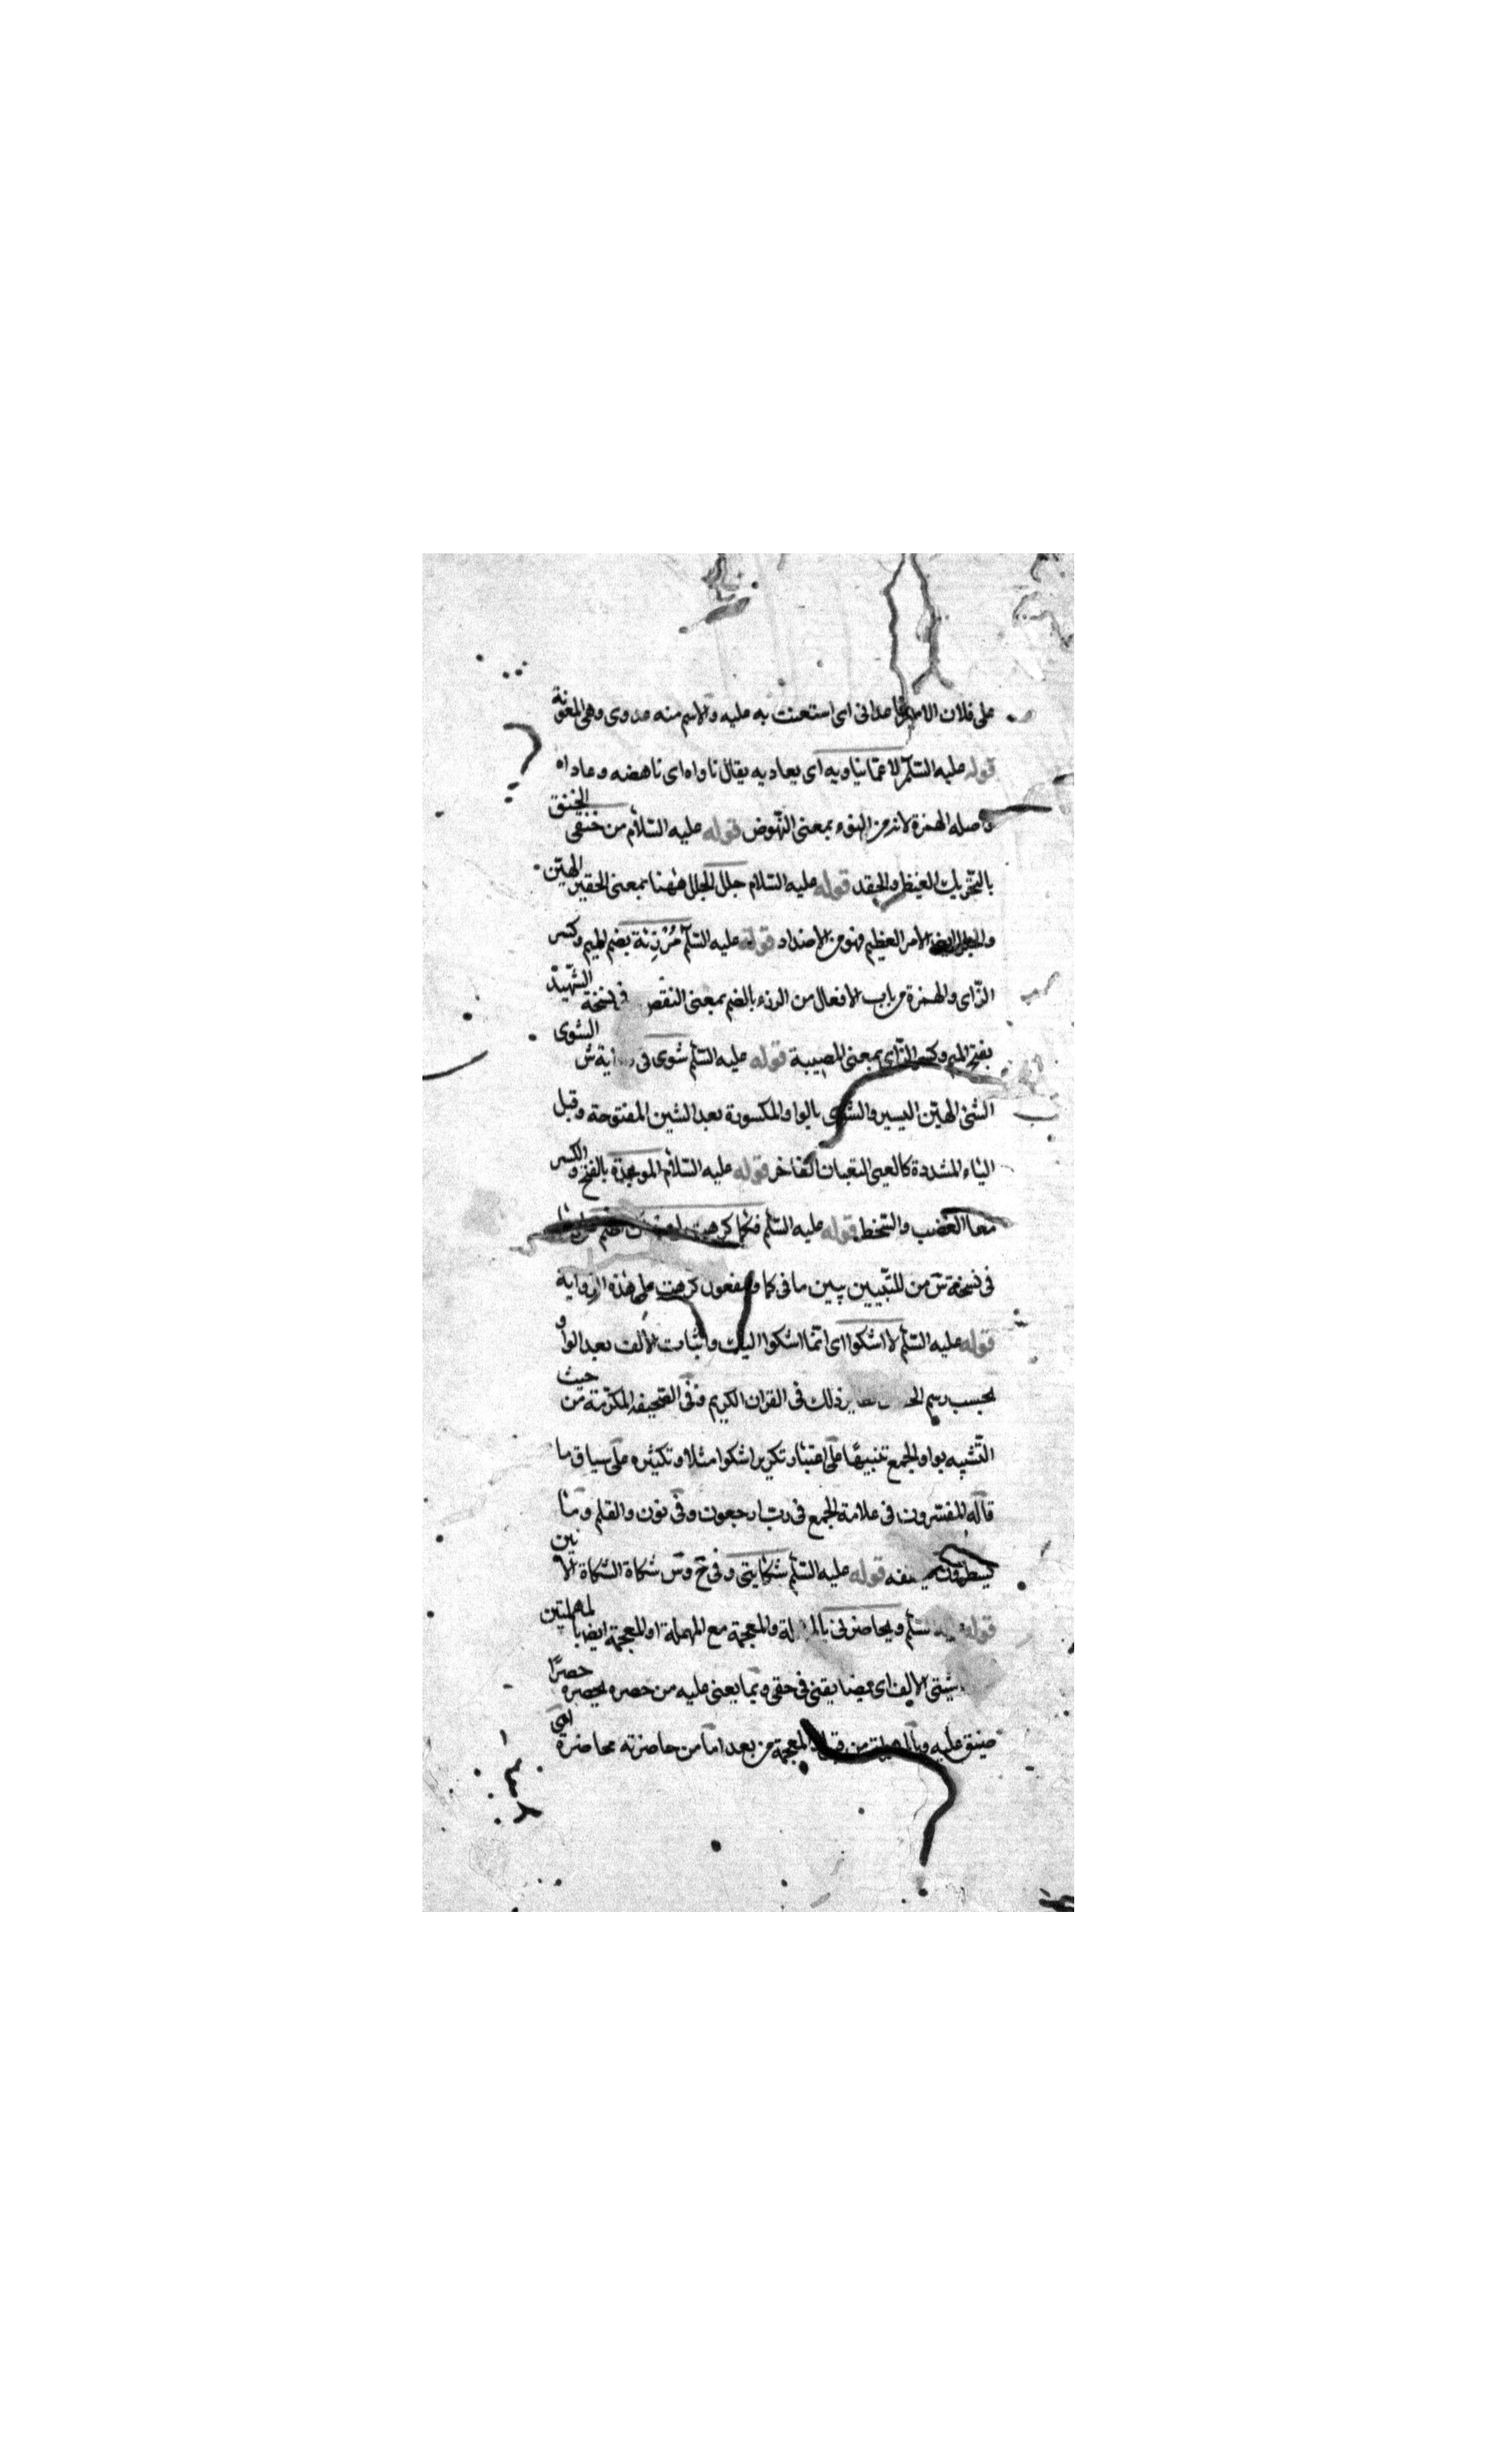 على فلان الامير فاعدانى اى استعنت به عليه والاسم منه عدوى وهى المعونة
قوله عليه السّلم لا عمّا يناويه اى يعاديه يقال ناواه اى ناهضه وعاداه
واصله الهمزة لانه من النوء بمعنى النّهوض قوله عليه السّلام من خنقى الخنق
بالتحّريك الغيظ والحقد قوله عليه السّلام جلل الجلل ههنا بمعنى الحقير الهيّن
والجلل ايضا الامر العظيم فهو من الاضداد قوله عليه السّلم مُرْزِئة بضم الميم وكسر
الزّاى والهمزة من باب الافعال من الرزء بالضم بمعنى النقص فى نسخة الشّهيد
بفتح الميم وكسر الزّاى بمعنى المصيبة قوله عليه السّلم شوى فى رواية س الشوى
الشئ الهيّن اليسير والشوى بالواو المكسورة بعد الشين المفتوحة وقبل
الياء المشددة كالعيى التعبان الفاخر قوله عليه السّلام الموجدة بالفتح والكسر
معا الغضب والسّخط قوله عليه السّلم فكما كرهت
فى نسخة س من للتّبيين يبين ما فى كما ومفعول كرهت على هذه الرواية
قوله عليه السّلم لا اشكوا اى انّما اشكوا اليك واثبات الالف بعد الواو
بحسب رسم ذلك فى القران الكريم وفى الصّحيفة المكرّمة من حيث
التّشبيه بواو الجمع تنبيها على اعتبار تكرير اشكوا مثلا وتكثيره على سياق ما
قاله المفسّرون فى علامة الجمع فى ربّ ارجعون وفى نون والقلم وما
يسطرون قوله عليه السّلم شكايتى وفى خ وس شكاة الشكاة الانين
قوله السّلم ويحاضرنى والمعجمة مع المهملة او المعجمة ايضا بالمهملتين
الالف اى يضايقنى فى حقى وبما يعنى عليه من حصره يحصره حصرًا
ضيّق عليه وبالمهملة من قبل المعجمة من بعد امّا من حاضرته محاضرة اى